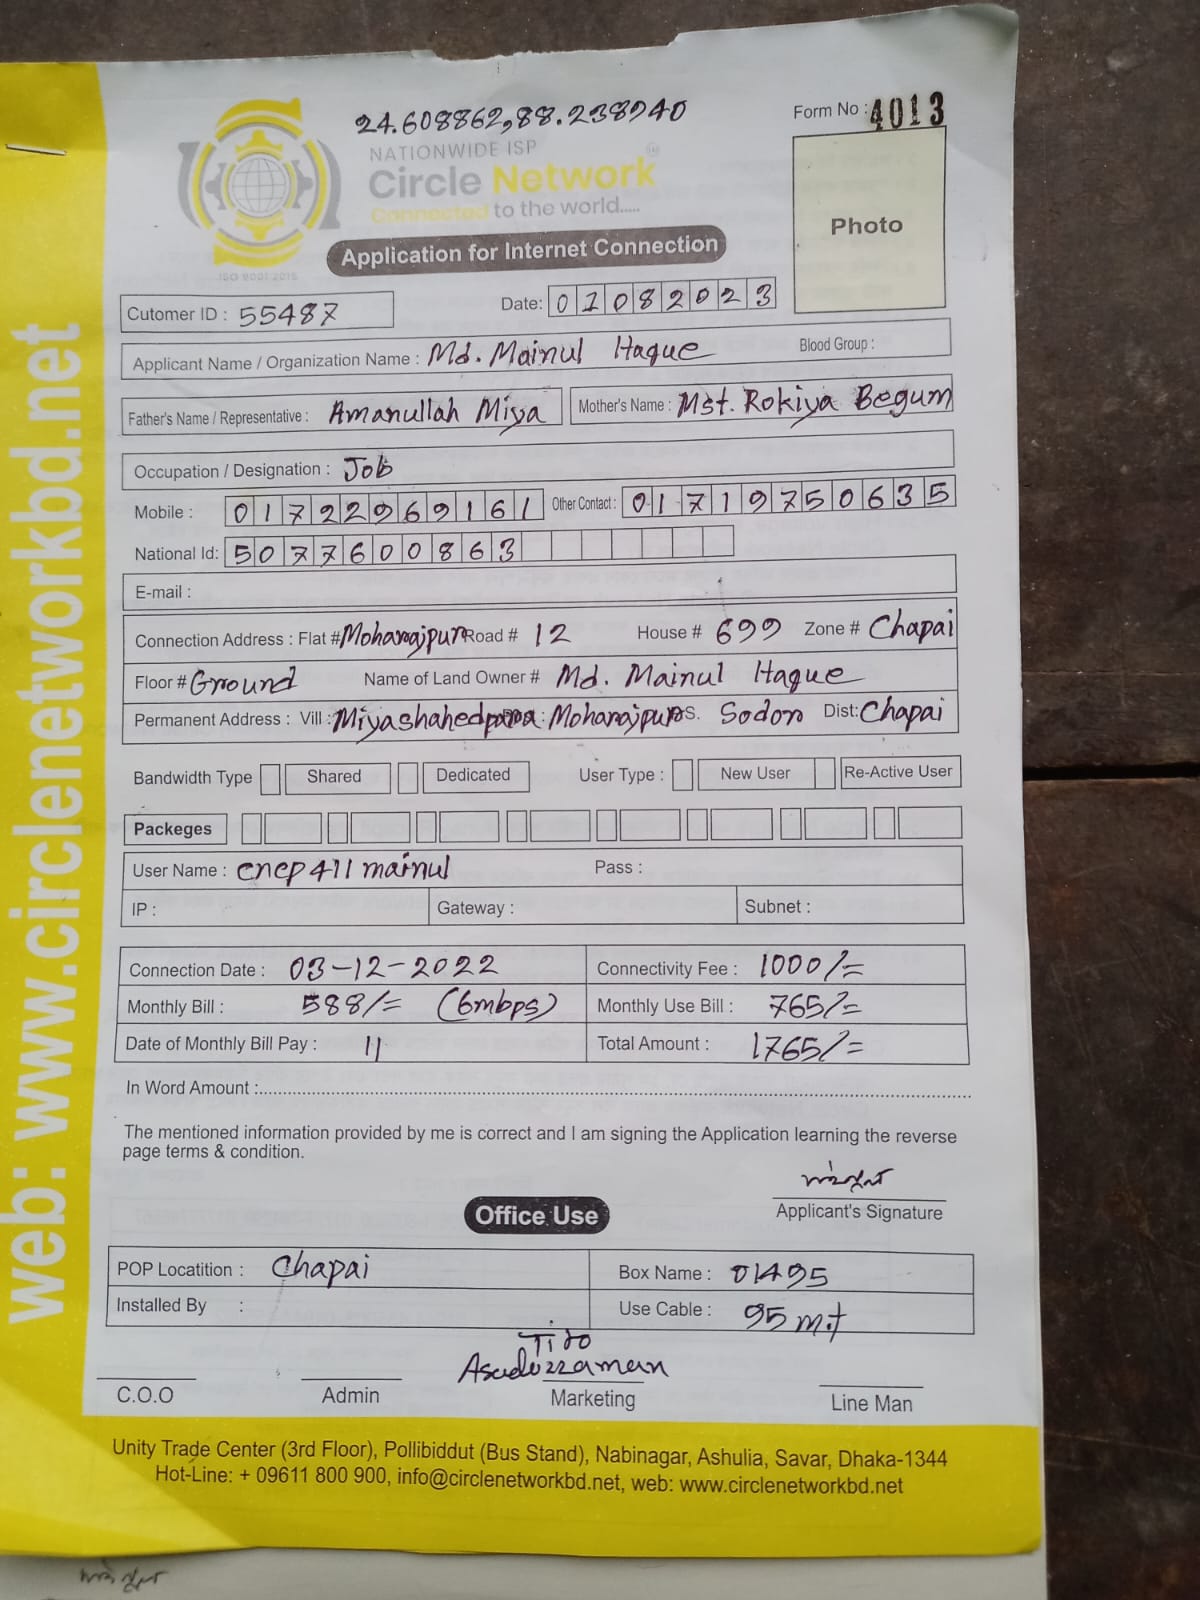 24.608862,88.238940
Form No : 4013
NATIONWIDE ISP
Circle Network
Connected to the world.....
ISO 9001:2015
Application for Internet Connection
Photo
Cutomer ID : 55487
Date: 01082023
Applicant Name / Organization Name : Md. Mainul Haque Blood Group :
Father's Name / Representative : Amanullah Miya Mother's Name : Mst. Rokiya Begum
Occupation / Designation : Job
Mobile : 01722969161 Other Contact : 01719750635
National Id: 5077600863
E-mail :
Connection Address : Flat # Mohanajpur Road # 12 House # 699 Zone # Chapai
Floor # Ground Name of Land Owner # Md. Mainul Haque
Permanent Address : Vill : Miyashahedpara Mohanajpur P.S. Sodor Dist: Chapai
Bandwidth Type Shared Dedicated User Type : New User Re-Active User
Packeges
User Name : cnep411mainul Pass :
IP : Gateway : Subnet :
Connection Date : 03-12-2022 Connectivity Fee : 1000/=
Monthly Bill : 588/= (6mbps) Monthly Use Bill : 765/=
Date of Monthly Bill Pay : 11 Total Amount : 1765/=
In Word Amount :
The mentioned information provided by me is correct and I am signing the Application learning the reverse
page terms & condition.
Applicant's Signature
Office Use
POP Locatition : Chapai Box Name : 01495
Installed By : Use Cable : 95 mt
Asaduzzaman
C.O.O Admin Marketing Line Man
Unity Trade Center (3rd Floor), Pollibiddut (Bus Stand), Nabinagar, Ashulia, Savar, Dhaka-1344
Hot-Line: + 09611 800 900, info@circlenetworkbd.net, web: www.circlenetworkbd.net
web: www.circlenetworkbd.net